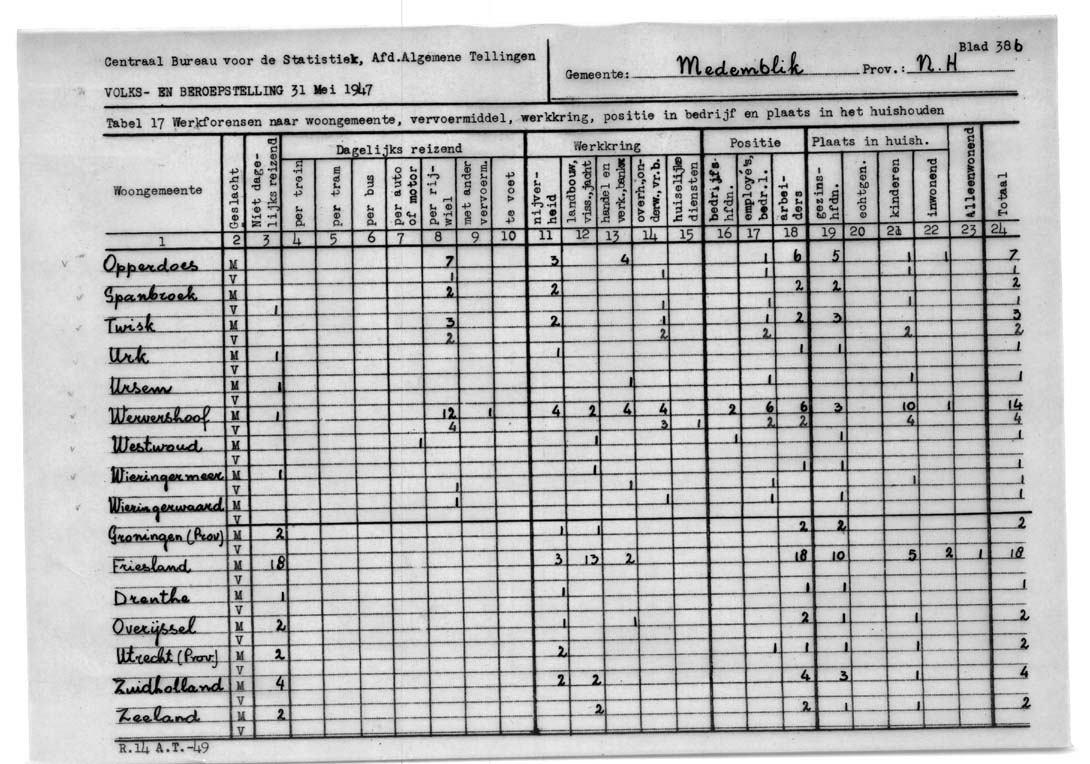 Centraal Bureau voor de Statistiek, Afd.Algemene Tellingen
VOLKS- EN BEROEPSTELLING 31 Mei 1947
Gemeente: Medemblik Prov.: N.H
Blad 38b
Tabel 17 Werkforensen naar woongemeente, vervoermiddel, werkkring, positie in bedrijf en plaats in het huishouden
Dagelijks reizend Werkkring Positie Plaats in huish.
Woongemeente Geslacht Niet dage-lijks reizend per trein per tram per bus per auto of motor per rij-wiel met ander vervoerm. te voet nijver-heid landbouw, viss.,jacht handel en verk.,bankw overh.,on-derw.,vr.b. huiselijke diensten bedrijfs-hfdn. employé's, bedr.l. arbei-ders gezins-hfdn. echtgen. kinderen inwonend Alleenwonend Totaal
1 2 3 4 5 6 7 8 9 10 11 12 13 14 15 16 17 18 19 20 21 22 23 24
Opperdoes M 7 3 4 1 6 5 1 1 7
V 1 1 1 1 1
Spanbroek M 2 2 2 2 2
V 1 1 1 1 1
Twisk M 3 2 1 1 2 3 3
V 2 2 2 2 2
Urk M 1 1 1 1 1
V
Ursem M 1 1 1 1 1
V
Wervershoof M 1 12 1 4 2 4 4 2 6 6 3 10 1 14
V 4 3 1 2 2 4 4
Westwoud M 1 1 1 1 1
V
Wieringermeer M 1 1 1 1 1
V 1 1 1 1 1
Wieringerwaard M 1 1 1 1 1
V
Groningen (Prov) M 2 1 1 2 2 2
V
Friesland M 18 3 13 2 18 10 5 2 1 18
V
Drenthe M 1 1 1 1 1
V
Overijssel M 2 1 1 2 1 1 2
V
Utrecht (Prov.) M 2 2 1 1 1 1 2
V
Zuidholland M 4 2 2 4 3 1 4
V
Zeeland M 2 2 2 1 1 2
V
R.14 A.T.-49